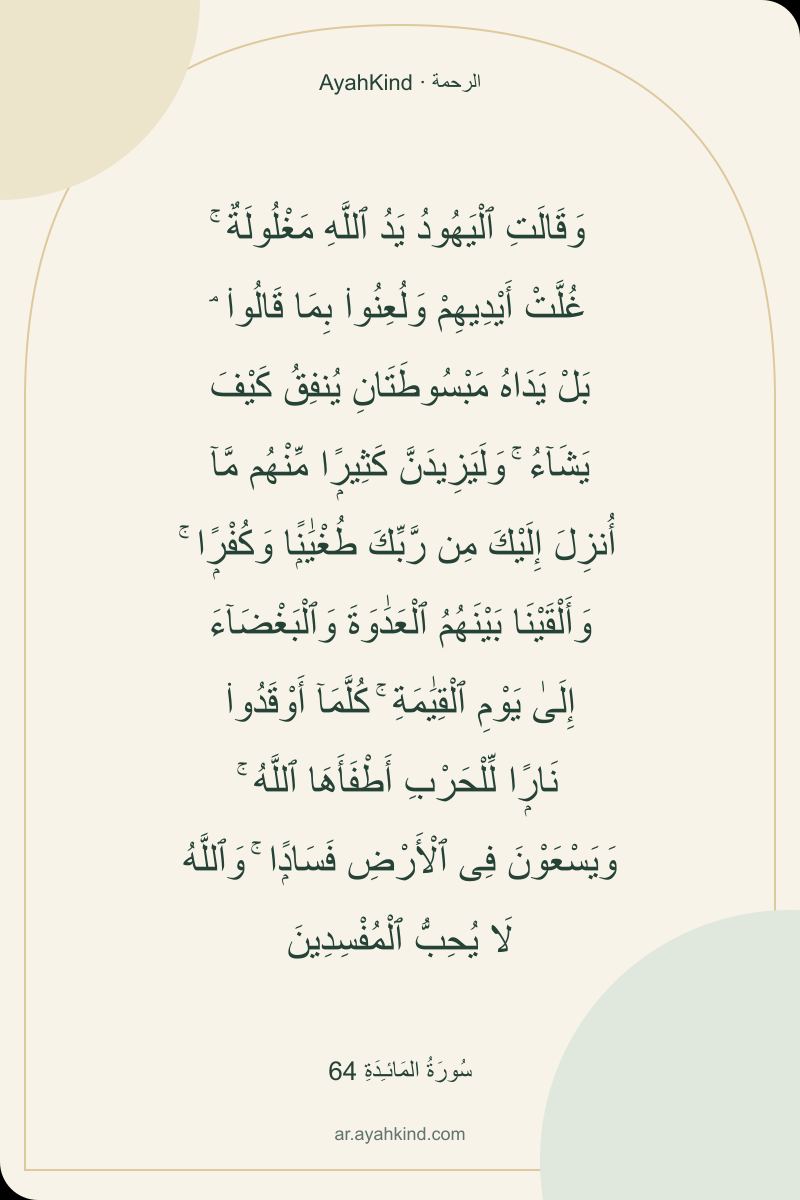 AyahKind · الرحمة
وَقَالَتِ ٱلْيَهُودُ يَدُ ٱللَّهِ مَغْلُولَةٌ ۚ
غُلَّتْ أَيْدِيهِمْ وَلُعِنُوا۟ بِمَا قَالُوا۟ ۘ
بَلْ يَدَاهُ مَبْسُوطَتَانِ يُنفِقُ كَيْفَ
يَشَآءُ ۚ وَلَيَزِيدَنَّ كَثِيرًۭا مِّنْهُم مَّآ
أُنزِلَ إِلَيْكَ مِن رَّبِّكَ طُغْيَـٰنًۭا وَكُفْرًۭا ۚ
وَأَلْقَيْنَا بَيْنَهُمُ ٱلْعَدَٰوَةَ وَٱلْبَغْضَآءَ
إِلَىٰ يَوْمِ ٱلْقِيَـٰمَةِ ۚ كُلَّمَآ أَوْقَدُوا۟
نَارًۭا لِّلْحَرْبِ أَطْفَأَهَا ٱللَّهُ ۚ
وَيَسْعَوْنَ فِى ٱلْأَرْضِ فَسَادًۭا ۚ وَٱللَّهُ
لَا يُحِبُّ ٱلْمُفْسِدِينَ
سُورَةُ المَائـِدَةِ 64
ar.ayahkind.com